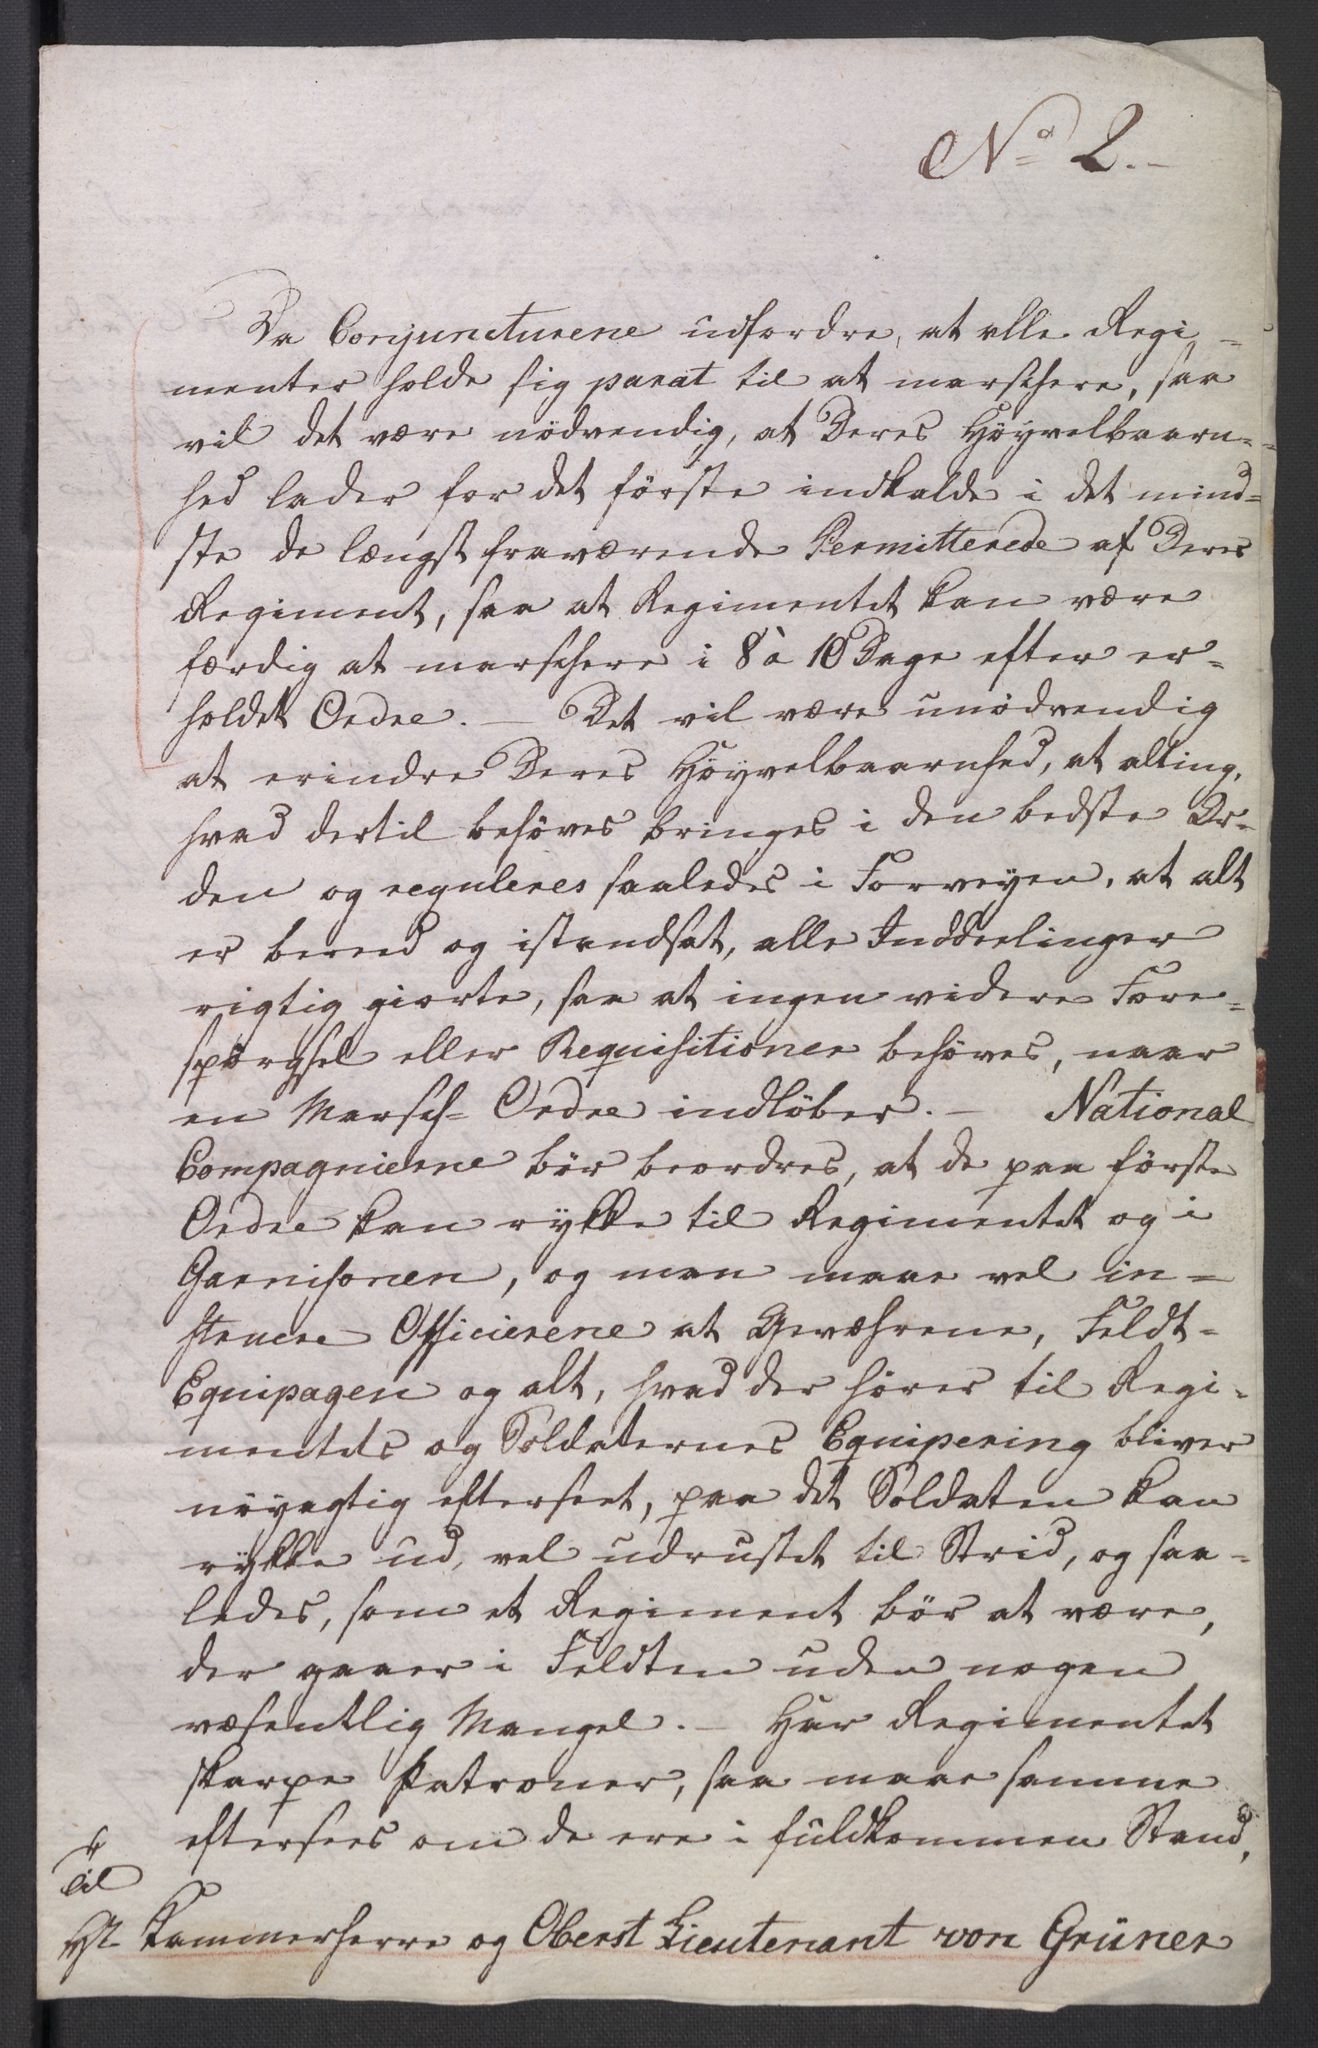 No 2.-
Da Conjuncturene udfordre, at alle Regi-
menter holde sig parat til at marschere, saa
vil det være nödvendig, at Deres Höyvelbaarn-
hed lader for det förste indkalde i det mind-
ste de længst fraværende Permitterede af Deres
Regiment, saa at Regimentet kan være
færdig at marschere i 8 à 10 Dage efter er-
holdet Ordre. - Det vil være unödvendig
at erindre Deres Höyvelbaarnhed, at alting,
hvad dertil behöves bringes i den bedste Or-
den og reguleres saaledes i Forveyen, at alt
er bered og istandsat, alle Inddeelinger
rigtig giorte, saa at ingen videre Fore-
spörgsel eller Requisitioner behöves, naar
en Marsch-Ordre indlöber. - National
Compagnierne bör beordres, at de paa förste
Ordre kan rÿkke til Regimentet og i
Garnisonen, og man maae vel in-
struere Officierene at Gewæhrene, Feldt-
Equipagen og alt, hvad der hörer til Regi-
mentets og Soldaternes Equipering bliver
nöyagtig efterseet, paa det Soldaten kan
rÿkke ud, vel udrustet til Strid, og saa-
ledes, som et Regiment bör at være,
der gaaer i Feldten uden nogen
væsentlig Mangel. - Har Regimentet
skarpe Patroner, saa maae samme
eftersees om de ere i fuldkommen Stand,
Til
Hr Kammerherre og Oberst Lieutenant von Grüner